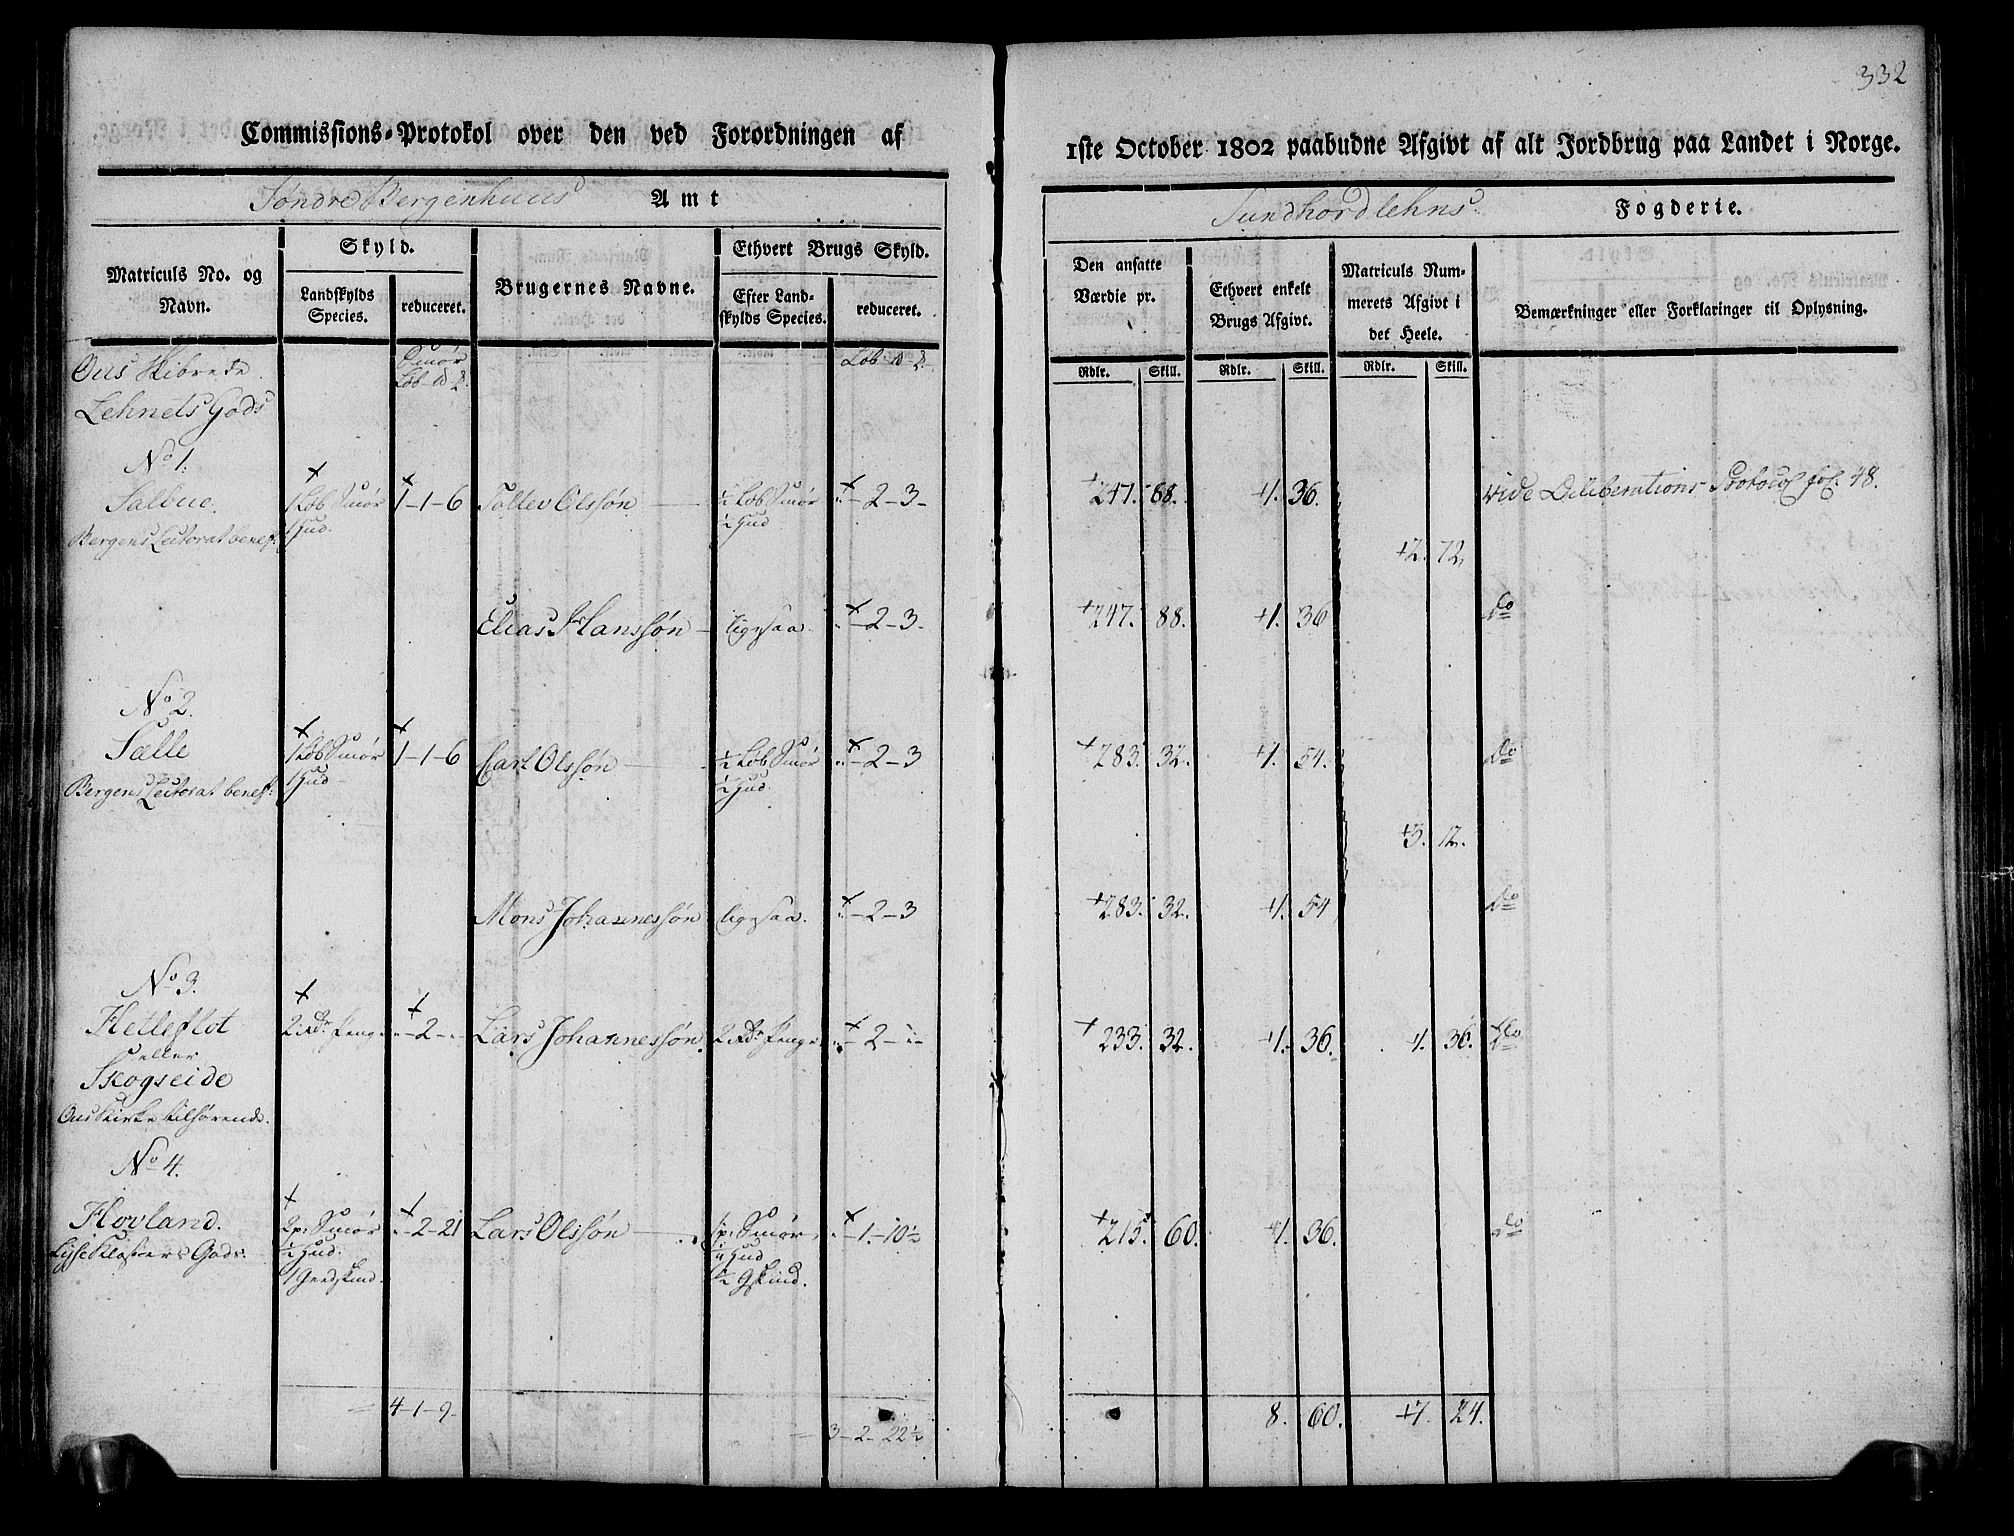 332
Commissions-Protokol over den ved Forordningen af
1ste October 1802 paabudne Afgivt af alt Jordbrug paa Landet i Norge.
Søndre Bergenhuus Amt
Sundhordlehns Fogderie.
Matriculs No. og Navn.
Skyld.
Landskylds Species.
reduceret.
Brugernes Navne.
Ethvert Brugs Skyld.
Efter Landskylds Species.
reduceret.
Den ansatte Værdie pr.
Ethvert enkelt Brugs Afgivt.
Matriculs Nummerets Afgivt i det Heele.
Bemærkninger eller Forklaringer til Oplysning.
Rdlr. Skill. Rdlr. Skill. Rdlr. Skill.
Ous Skibrede
Smør
Løb
Løb
Lehnets Gods
No 1.
Salbue 1 Løb Smør 1-1-6 Tollev Olssøn ½ Løb Smør "-2-3- 247. 88. 1. 36. vide Deliberations Protocol fol. 48.
Bergens Lectorat benef: 1 Hud ½ Hud
2. 72.
Elias Hanssøn ligesaa. "-2-3- 247. 88. 1. 36 do
No 2.
Sælle 1 Løb Smør 1-1-6 Carl Olssøn ½ Løb Smør "-2-3 283. 32. 1. 54. do
Bergens Lectorat benef: 1 Hud ½ Hud
3. 12.
Mons Johannessøn ligesaa. "-2-3 283. 32. 1. 54 do
No 3.
Hetleflot "-2-" Lars Johannessøn "-2-" 233. 32. 1. 36. 1. 36. do
eller
Skogseide
Ous Kirke tilhørende.
No 4.
Hovland. 2 p: Smør "-2-21 Lars Olssøn 1 p: Smør "-1-10½ 215. 60. 1. 36. do
Lyse Closters Gods. ½ Hud ¼ Hud
1 Geedskind ½ Gskind.
4-1-9 8. 60. 7. 24.
3-2-22½